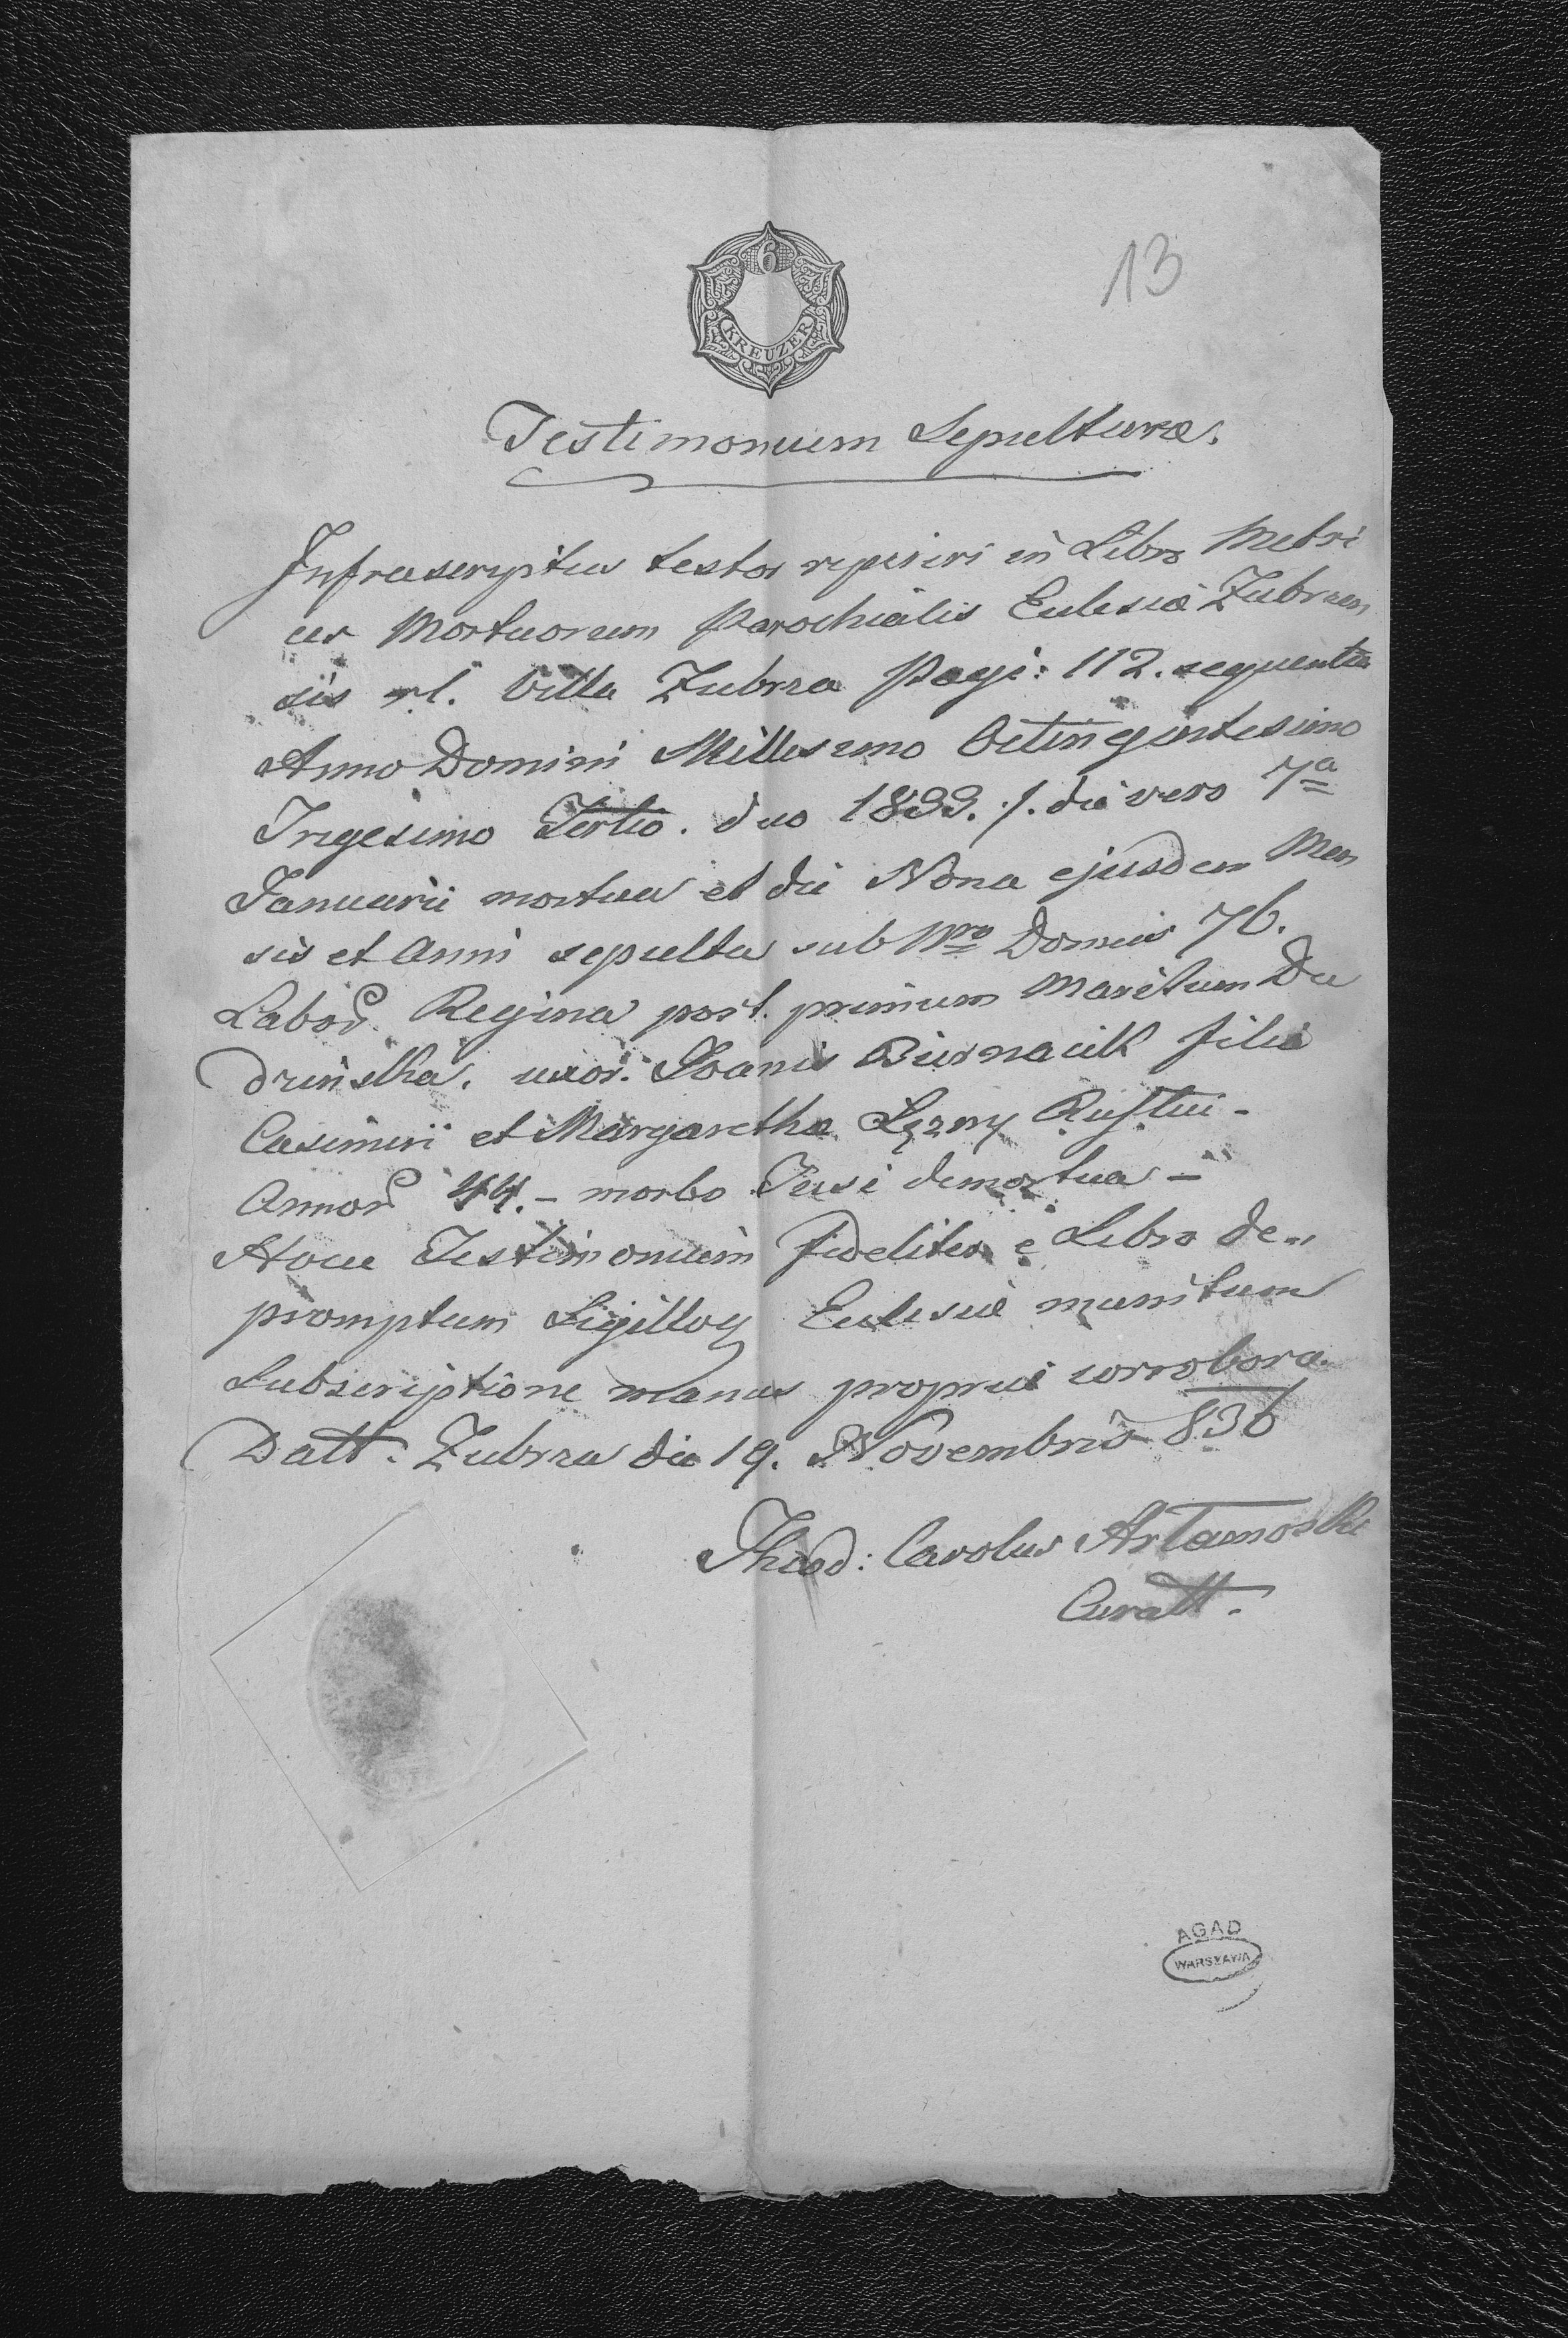 6
KREUZER
13
Testimonium Sepulturæ.
Infrascriptus testor reperiri in Libro Metri
ces Mortuorum Parochialis Eclesiæ Zubrzen
sis rl. Villa Zubrza Pagi: 112. sequentia
Anno Domini Millesimo Octingentesimo
Trigesimo Tertio. duo 1833. /. die vero 7a
Januarii mortua et die Nona ejusdem Men
sis et Anni sepulta sub Nro Domus 76.
Labor. Regina post. primum Maritum Du
drinska. uxor. Joanis Biernacik filia
Casimiri et Margaretha Lęzny Rustici -
Annor 44. - morbo Tusi demortua -
Hocce Testimonium fideliter e Libro de„
promptum Sigilloq Eclesiæ munitum
Subscriptione manus propriæ corrobora.
Datt. Zubrza die 19. Novembris 836
Theod: Carolus Artamoski
Curatt.
AGAD
WARSZAWA